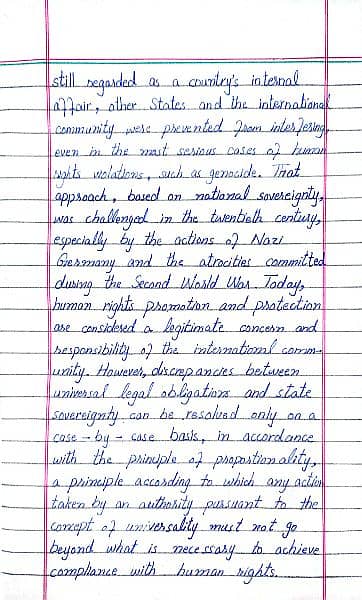 still regarded as a country's internal
affair, other States and the international
community were prevented from interfering,
even in the most serious cases of human
rights violations, such as genocide. That
approach, based on national sovereignty,
was challenged in the twentieth century,
especially by the actions of Nazi
Germany and the atrocities committed
during the Second World War. Today,
human rights promotion and protection
are considered a legitimate concern and
responsibility of the international comm-
unity. However, discrepancies between
universal legal obligations and state
sovereignty can be resolved only on a
case - by - case basis, in accordance
with the principle of proportionality,
a principle according to which any action
taken by an authority pursuant to the
concept of universality must not go
beyond what is necessary to achieve
compliance with human rights.